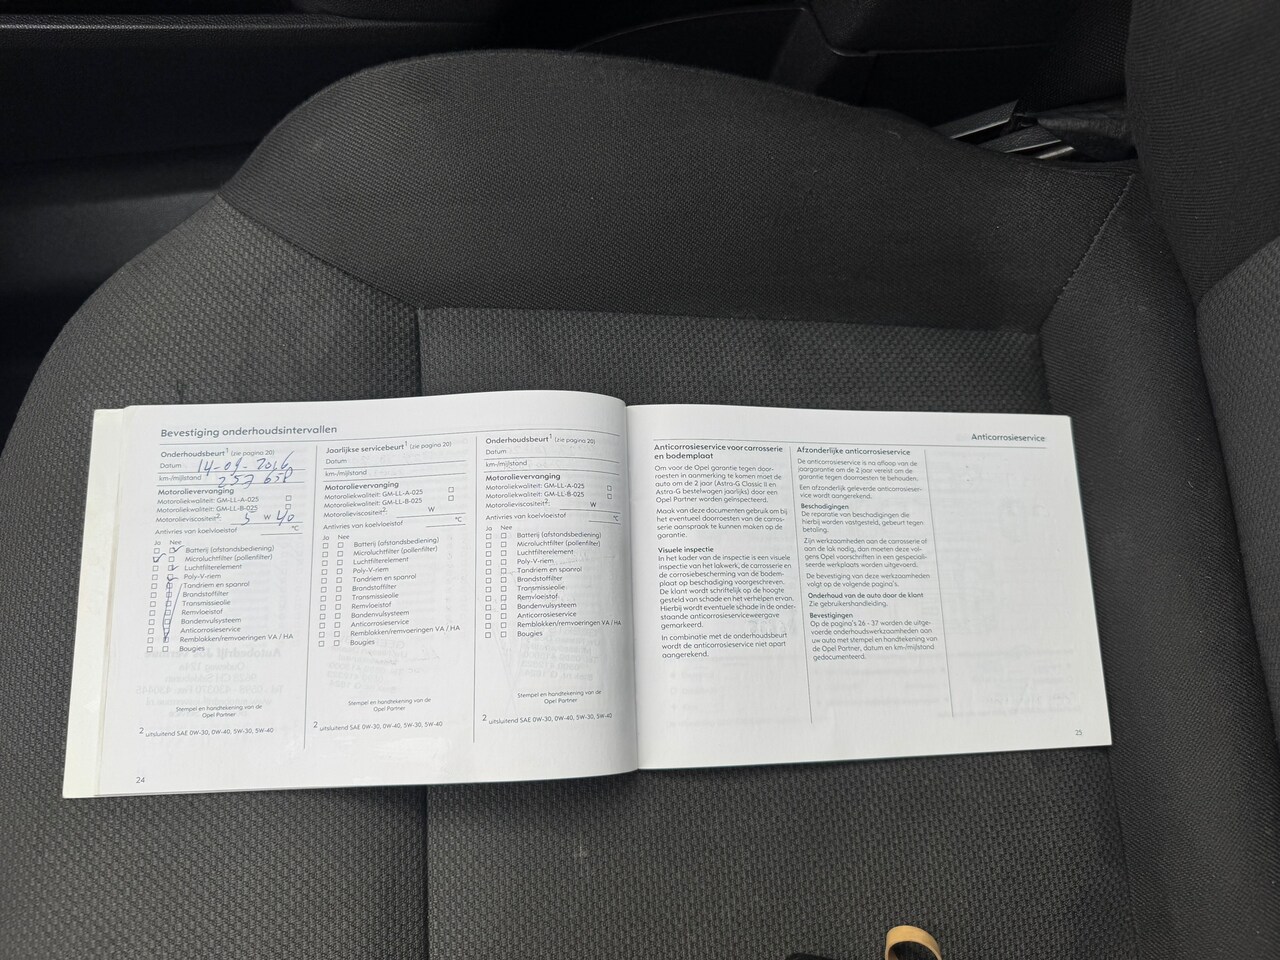 Bevestiging onderhoudsintervallen
Onderhoudsbeurt¹ (zie pagina 20)
Datum 14-09-2016
km-/mijlstand 257 658
Motorolievervanging
Motoroliekwaliteit: GM-LL-A-025
Motoroliekwaliteit: GM-LL-B-025
Motorolieviscositeit² 5 W 40
Antivries van koelvloeistof °C
Ja Nee
Batterij (afstandsbediening)
Microluchtfilter (pollenfilter)
Luchtfilterelement
Poly-V-riem
Tandriem en spanrol
Brandstoffilter
Transmissieolie
Remvloeistof
Bandenvulsysteem
Anticorrosieservice
Remblokken/remvoeringen VA / HA
Bougies
Stempel en handtekening van de
Opel Partner
2 uitsluitend SAE 0W-30, 0W-40, 5W-30, 5W-40
24
Jaarlijkse servicebeurt¹ (zie pagina 20)
Datum
km-/mijlstand
Motorolievervanging
Motoroliekwaliteit: GM-LL-A-025
Motoroliekwaliteit: GM-LL-B-025
Motorolieviscositeit² W
Antivries van koelvloeistof °C
Ja Nee
Batterij (afstandsbediening)
Microluchtfilter (pollenfilter)
Luchtfilterelement
Poly-V-riem
Tandriem en spanrol
Brandstoffilter
Transmissieolie
Remvloeistof
Bandenvulsysteem
Anticorrosieservice
Remblokken/remvoeringen VA / HA
Bougies
Stempel en handtekening van de
Opel Partner
2 uitsluitend SAE 0W-30, 0W-40, 5W-30, 5W-40
Onderhoudsbeurt¹ (zie pagina 20)
Datum
km-/mijlstand
Motorolievervanging
Motoroliekwaliteit: GM-LL-A-025
Motoroliekwaliteit: GM-LL-B-025
Motorolieviscositeit² W
Antivries van koelvloeistof °C
Ja Nee
Batterij (afstandsbediening)
Microluchtfilter (pollenfilter)
Luchtfilterelement
Poly-V-riem
Tandriem en spanrol
Brandstoffilter
Transmissieolie
Remvloeistof
Bandenvulsysteem
Anticorrosieservice
Remblokken/remvoeringen VA / HA
Bougies
Stempel en handtekening van de
Opel Partner
2 uitsluitend SAE 0W-30, 0W-40, 5W-30, 5W-40
Anticorrosieservice
Anticorrosieservice voor carrosserie
en bodemplaat
Om voor de Opel garantie tegen door-
roesten in aanmerking te komen moet de
auto om de 2 jaar (Astra-G Classic II en
Astra-G bestelwagen jaarlijks) door een
Opel Partner worden geïnspecteerd.
Maak van deze documenten gebruik bij
het eventueel doorroesten van de carros-
serie aanspraak te kunnen maken op de
garantie.
Visuele inspectie
In het kader van de inspectie is een visuele
inspectie van het lakwerk, de carrosserie en
de corrosiebescherming van de bodem-
plaat op beschadiging voorgeschreven.
De klant wordt schriftelijk op de hoogte
gesteld van schade en het verhelpen ervan.
Hierbij wordt eventuele schade in de onder-
staande anticorrosieserviceweergave
gemarkeerd.
In combinatie met de onderhoudsbeurt
wordt de anticorrosieservice niet apart
aangerekend.
Afzonderlijke anticorrosieservice
De anticorrosieservice is na afloop van de
jaargarantie om de 2 jaar vereist om de
garantie tegen doorroesten te behouden.
Een afzonderlijk geleverde anticorrosieser-
vice wordt aangerekend.
Beschadigingen
De reparatie van beschadigingen die
hierbij worden vastgesteld, gebeurt tegen
betaling.
Zijn werkzaamheden aan de carrosserie of
aan de lak nodig, dan moeten deze vol-
gens Opel voorschriften in een gespeciali-
seerde werkplaats worden uitgevoerd.
De bevestiging van deze werkzaamheden
volgt op de volgende pagina's.
Onderhoud van de auto door de klant
Zie gebruikershandleiding.
Bevestigingen
Op de pagina's 26 - 37 worden de uitge-
voerde onderhoudswerkzaamheden aan
uw auto met stempel en handtekening van
de Opel Partner, datum en km-/mijlstand
gedocumenteerd.
25